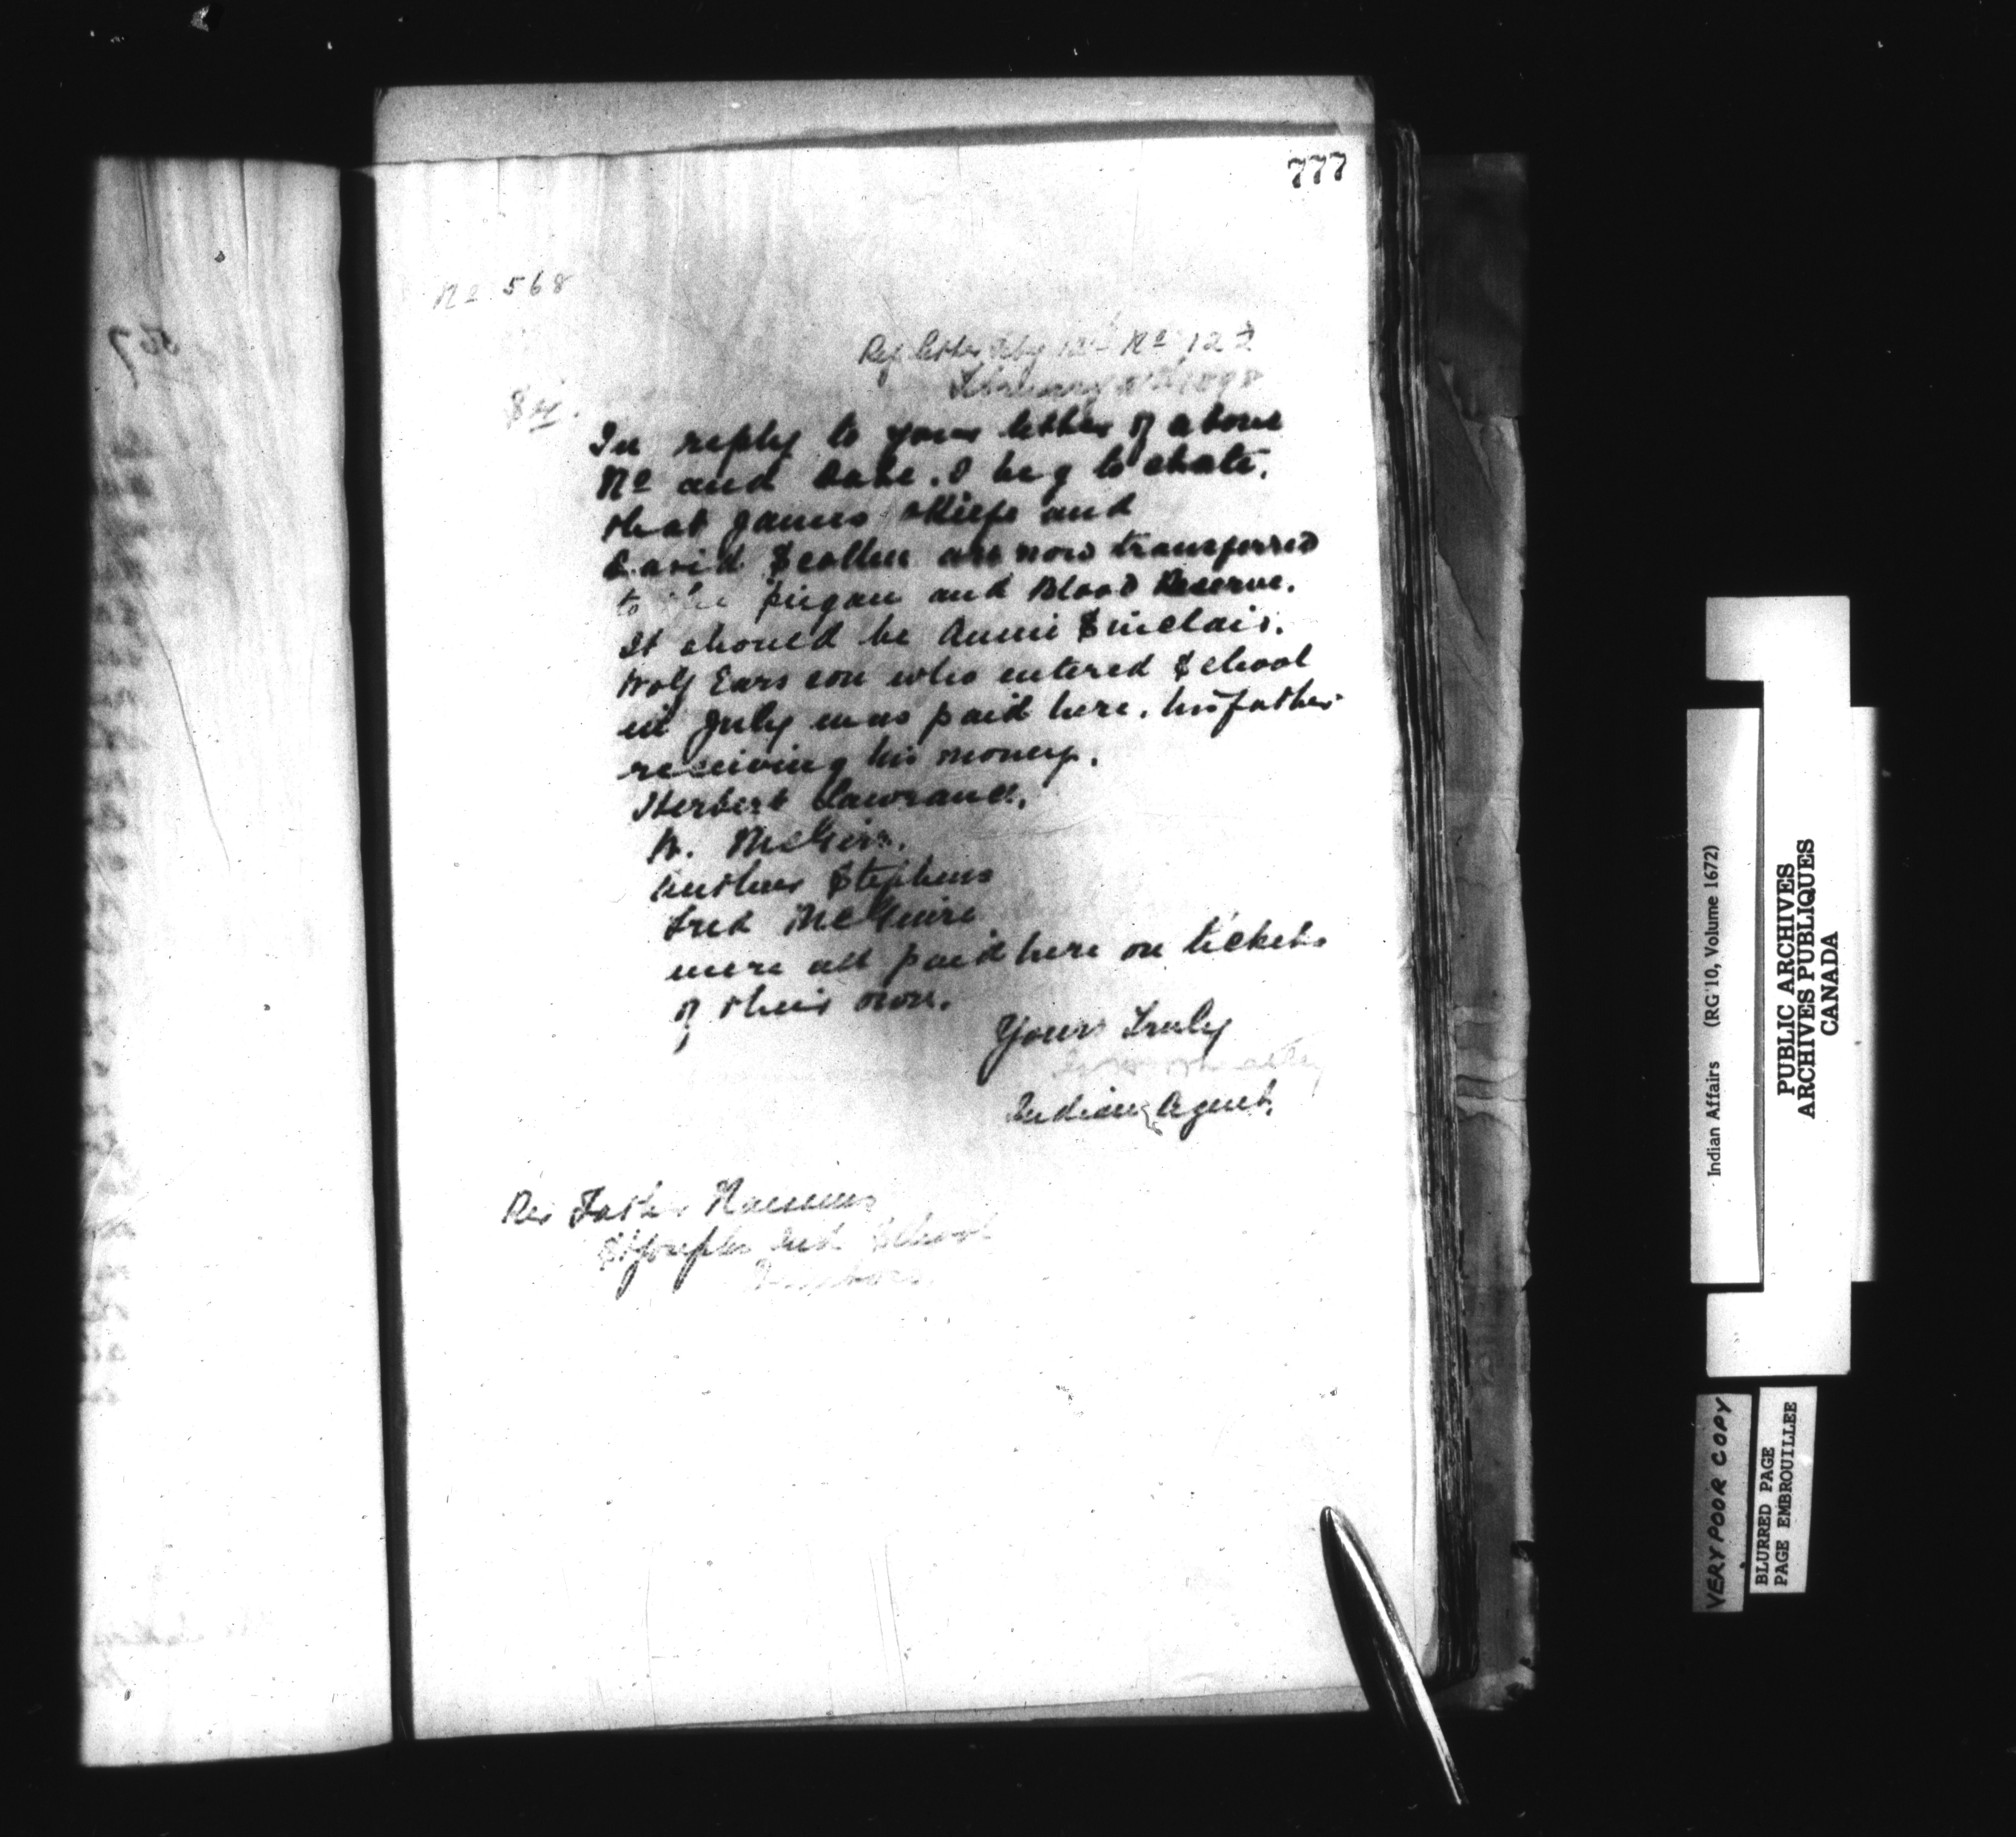 777
Nº 568
Ref letter Feby Nº 122
February 1898
Sir.
In reply to your letter of above
Nº and date. I beg to state.
that James and
David Scollen are now transferred
to the Piegan and Blood Reserve.
It should be Annie Sinclair.
Wolf Ears son who entered School
in July was paid here. his father
receiving his money.
Herbert Lawrance.
W. McGirr.
Arthur Stephens
Fred McGuire
were all paid here on tickets
of their own.
Yours Truly
Indian Agent.
Rev Father Naessens
St Josephs Ind School
Dunbow
567
Indian Affairs (RG 10, Volume 1672)
PUBLIC ARCHIVES
ARCHIVES PUBLIQUES
CANADA
VERY POOR COPY
BLURRED PAGE
PAGE EMBROUILLEE